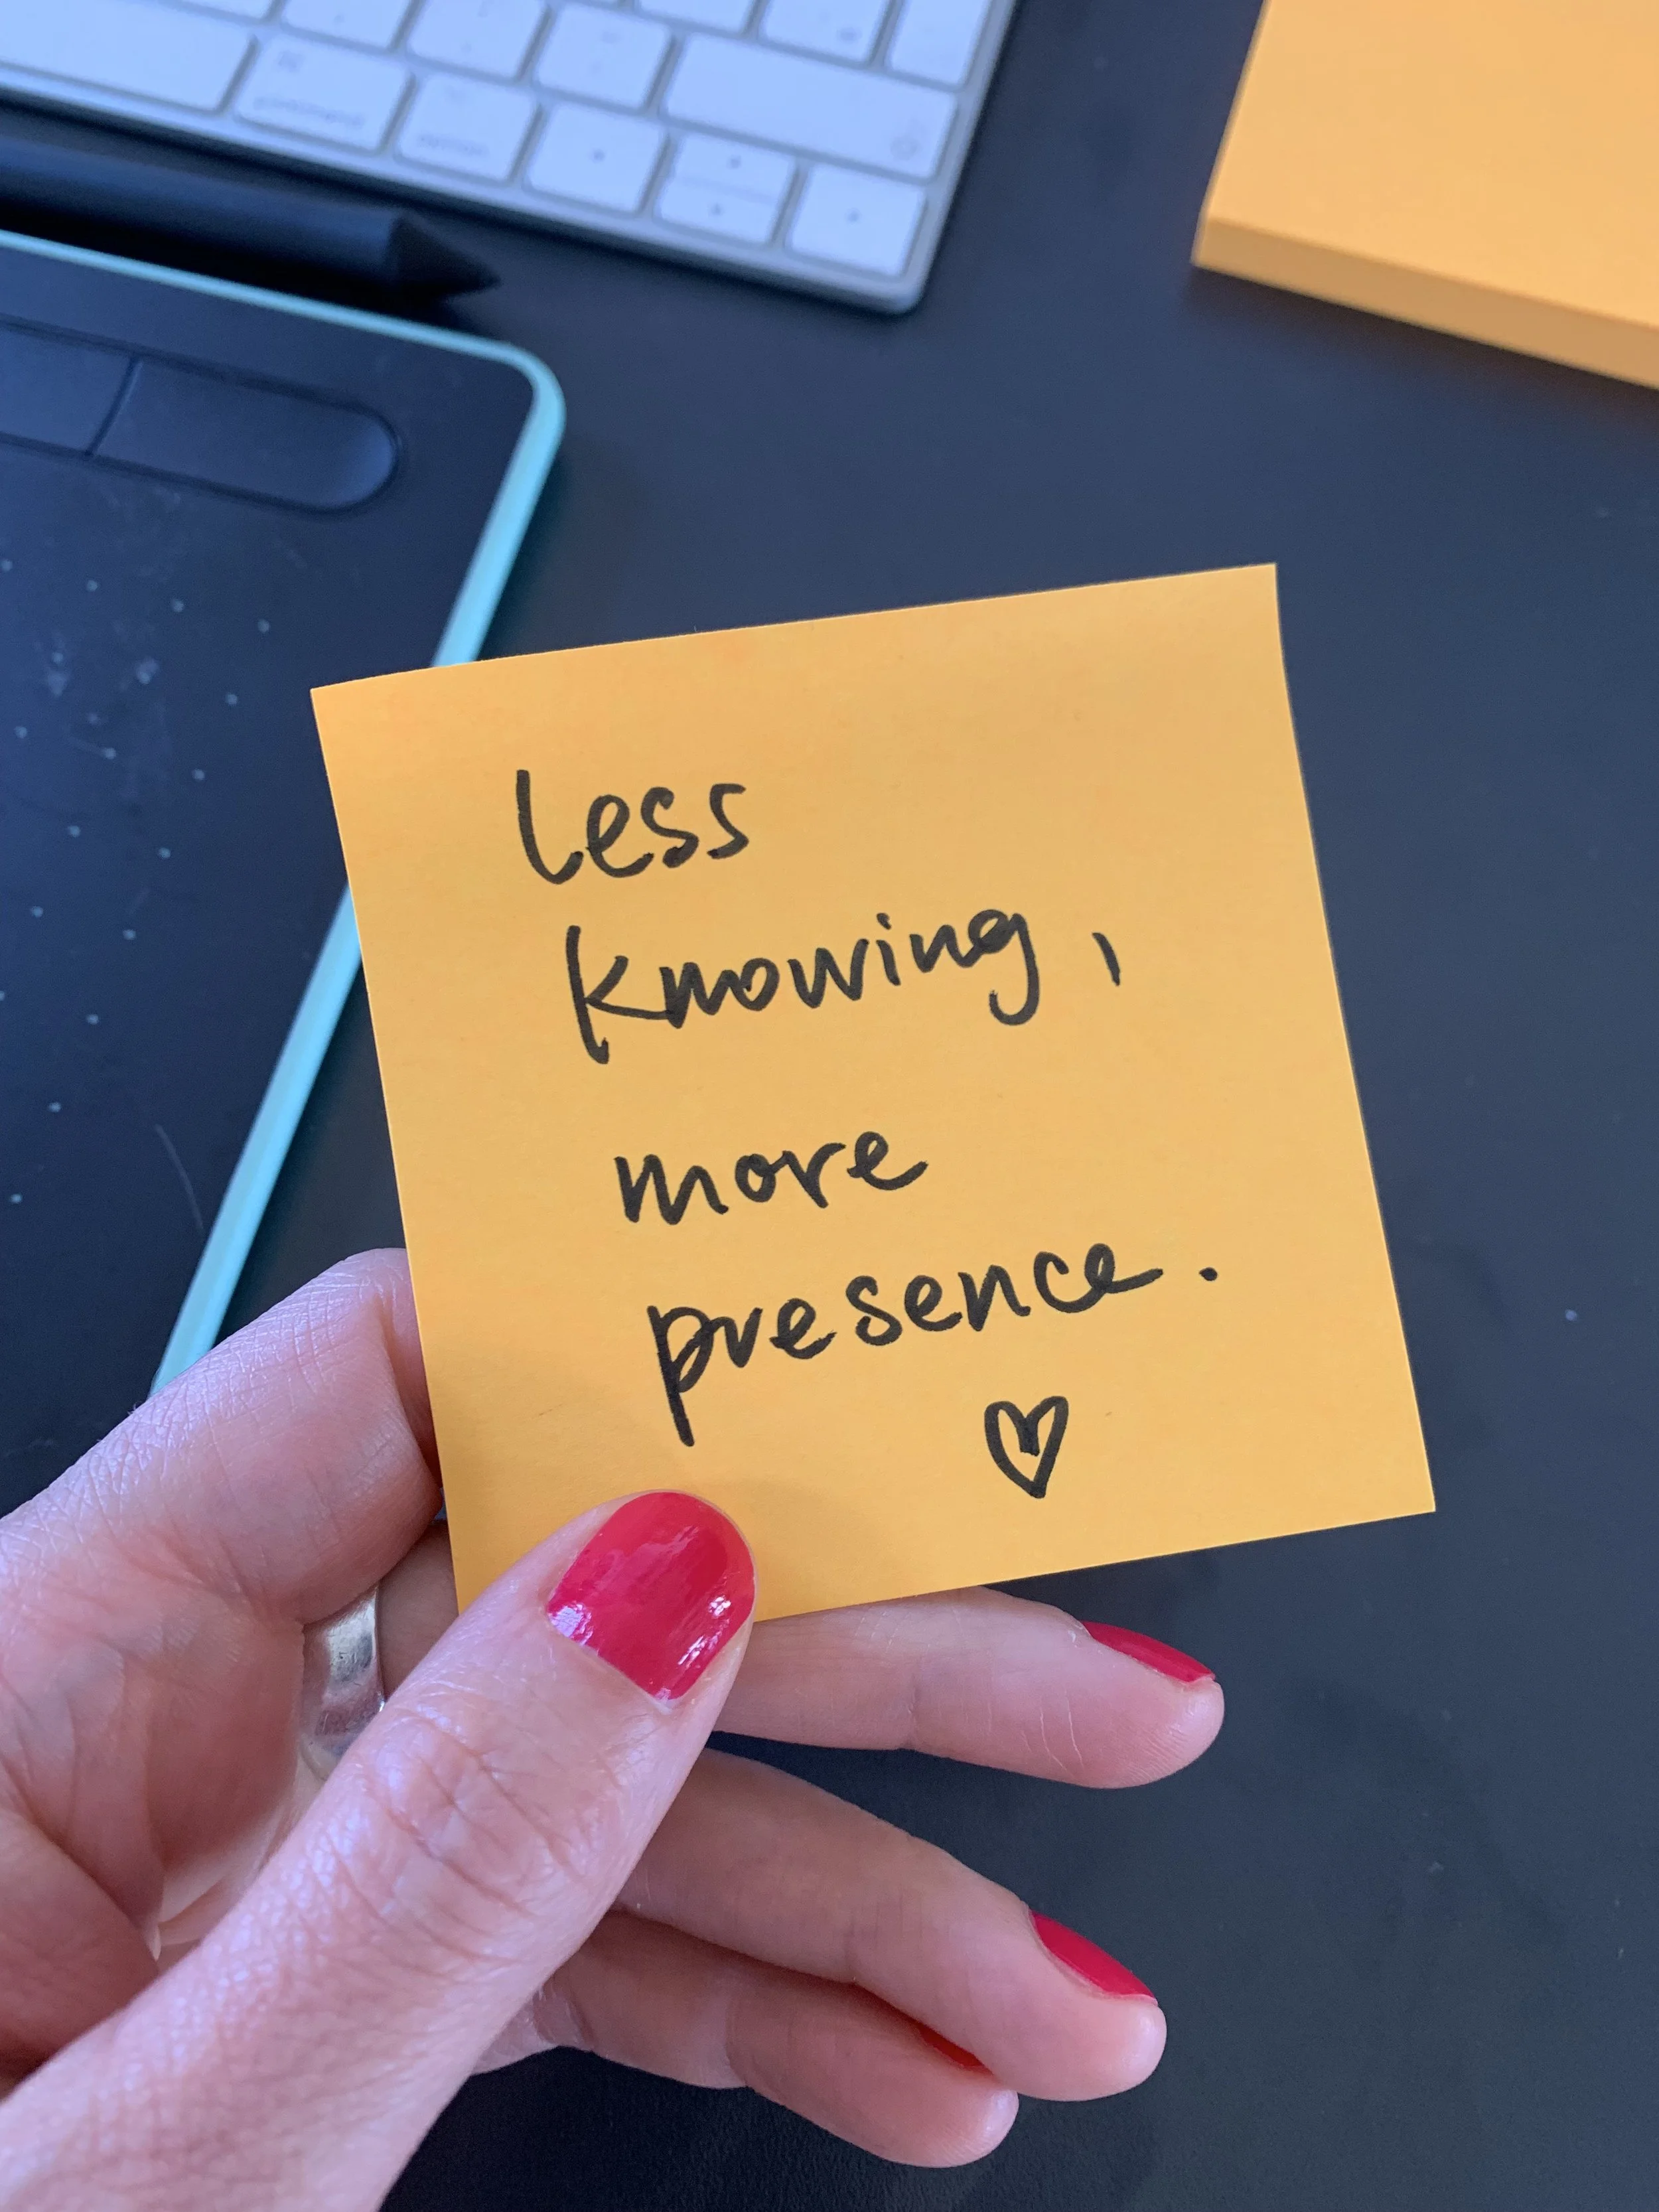 less
knowing,
more
presence.